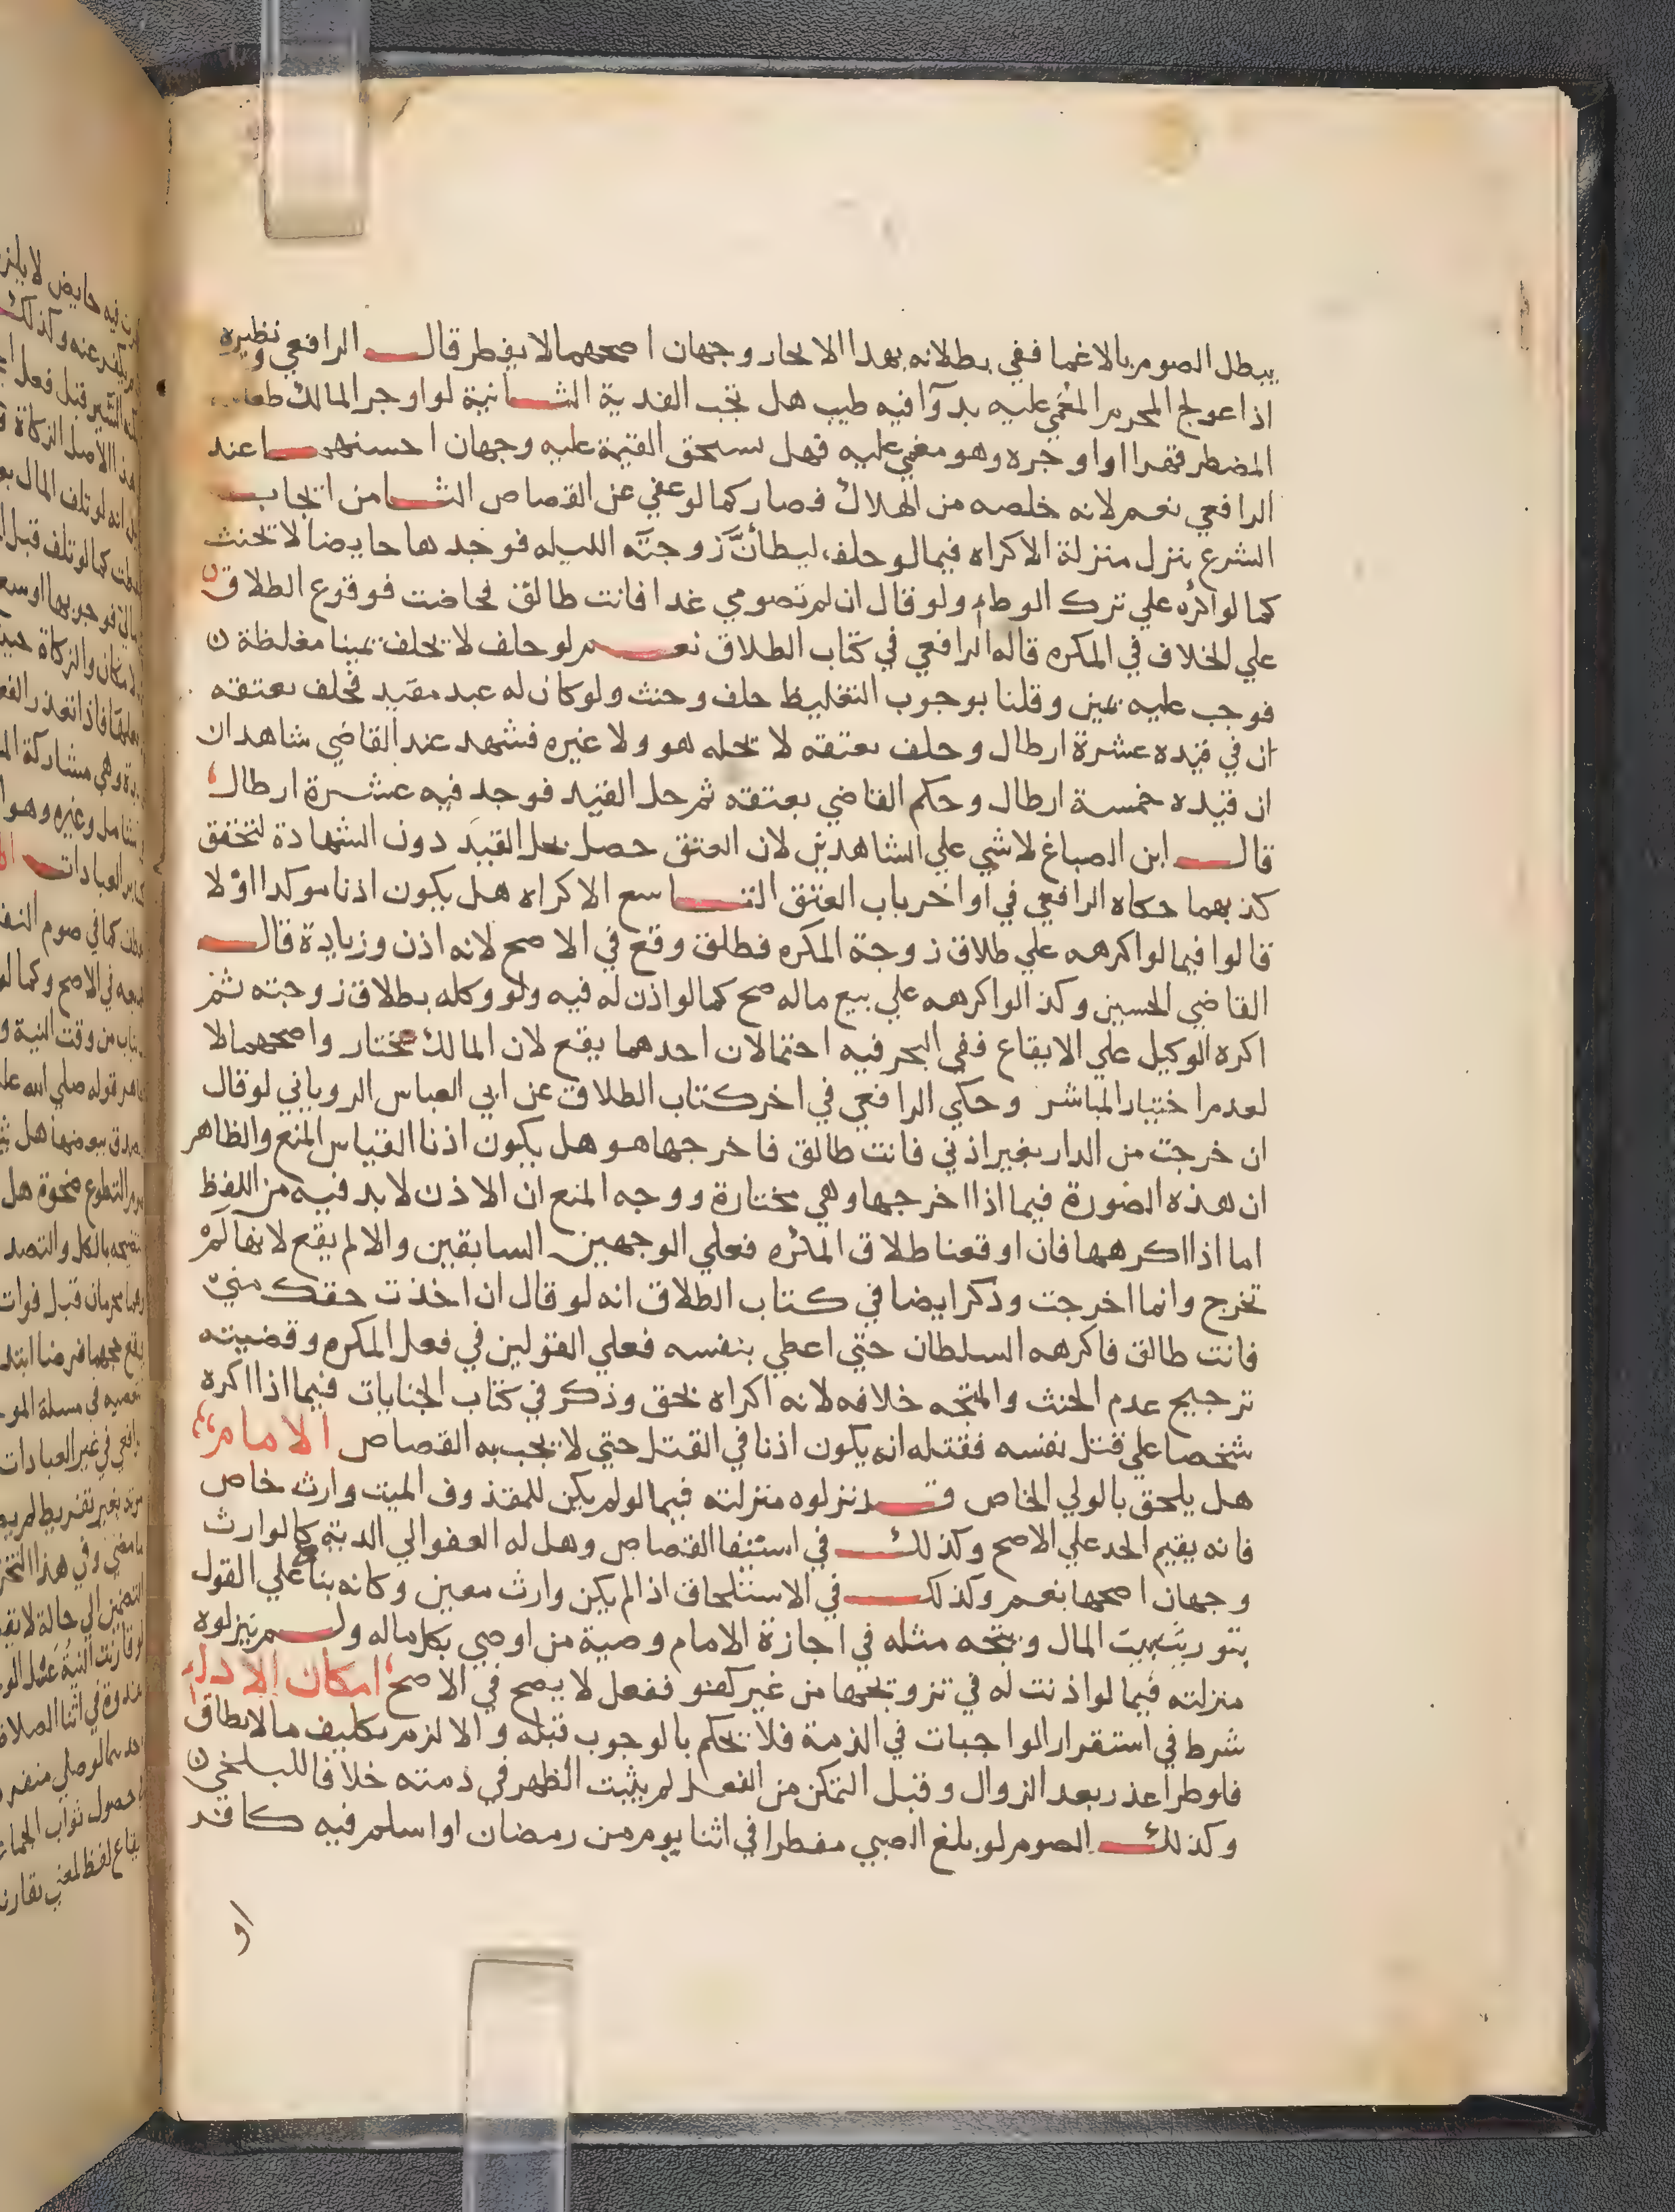 يبطل الصوم بالاغما ففي بطلانه بهذا الايجار وجهان اصحهما لا يفطر قال الرافعي ونظيره
اذا عولج المحرم المغمي عليه بدوآ فيه طيب هل تجب الفدية الثانية لو اوجر المالك طعامه
المضطر قهرا او اوجره وهو مغمي عليه فهل يستحق القيمة عليه وجهان احسنهما عند
الرافعي نعم لانه خلصه من الهلاك فصار كما لو عفي عن القصاص الثامن ايجاب
الشرع ينزل منزلة الاكراه فيما لو حلف ليطأنّ زوجته الليله فوجدها حايضا لا يحنث
كما لو اكره علي ترك الوطء ولو قال ان لم تصومي غدا فانت طالق فحاضت فوقوع الطلاق
علي الخلاف في المكره قاله الرافعي في كتاب الطلاق نعم لو حلف لا يحلف يمينا مغلظة
فوجب عليه يمين وقلنا بوجوب التغليظ حلف وحنث ولو كان له عبد مقيد فحلف بعتقه
ان في قيده عشرة ارطال وحلف بعتقه لا يحله هو ولا غيره فشهد عند القاضي شاهدان
ان قيده خمسة ارطال وحكم القاضي بعتقه ثم حل القيد فوجد فيه عشرة ارطال
قال ابن الصباغ لا شي علي الشاهدين لان العتق حصل بحل القيد دون الشهادة لتحقق
كذبهما حكاه الرافعي في اواخر باب العتق التاسع الاكراه هل يكون اذنا موكدا اوّلا
قالوا فيما لو اكرهه علي طلاق زوجة المكره فطلق وقع في الاصح لانه اذن وزيادة قال
القاضي الحسين وكذا لو اكرهه علي بيع ماله صح كما لو اذن له فيه ولو وكله بطلاق زوجته ثم
اكره الوكيل علي الايقاع ففي البحر فيه احتمالان احدهما يقع لان المالك مختار واصحهما لا
لعدم اختيار المباشر وحكي الرافعي في اخر كتاب الطلاق عن ابي العباس الروياني لو قال
ان خرجت من الدار بغير اذني فانت طالق فاخرجها هو هل يكون اذنا القياس المنع والظاهر
ان هذه الصورة فيما اذا اخرجها وهي مختارة ووجه المنع ان الاذن لا بد فيه من اللفظ
اما اذا اكرهها فان اوقعنا طلاق المكره فعلي الوجهين السابقين والا لم يقع لانها لم
تخرج وانما اخرجت وذكر ايضا في كتاب الطلاق انه لو قال ان اخذت حقك مني
فانت طالق فاكرهه السلطان حتي اعطي بنفسه فعلي القولين في فعل المكره وقضيته
ترجيح عدم الحنث والمتجه خلافه لانه اكراه بحق وذكر في كتاب الجنايات فيما اذا اكره
شخصا علي قتل نفسه فقتله انه يكون اذنا في القتل حتي لا يجب به القصاص الامام
هل يلحق بالولي الخاص قد نزلوه منزلته فيما لو لم يكن للمقذوف الميت وارث خاص
فانه يقيم الحد علي الاصح وكذلك في استيفا القصاص وهل له العفو الي الدية كالوارث
وجهان اصحها نعم وكذلك في الاستلحاق اذا لم يكن وارث معين وكانه بنأ علي القول
بتوريث بيت المال ويتجه مثله في اجازة الامام وصية من اوصي بكل ماله ولم ينزلوه
منزلته فيما لو اذنت له في تزويجها من غير كفو ففعل لا يصح في الاصح امكان الاداء
شرط في استقرار الواجبات في الذمة فلا يحكم بالوجوب قبله والا لزم تكليف ما لا يطاق
فلو طرا عذر بعد الزوال وقبل التمكن من الفعل لم يثبت الظهر في ذمته خلافا للبلخي
وكذلك الصوم لو بلغ الصبي مفطرا في اثنا يوم من رمضان او اسلم فيه كافر
او